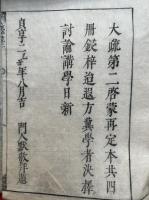 大疏第二啓蒙再定本共四
冊鋟梓迨遐方冀學者決擇
討論講學日新
貞享二乙丑年八月吉 門人默敬拜題